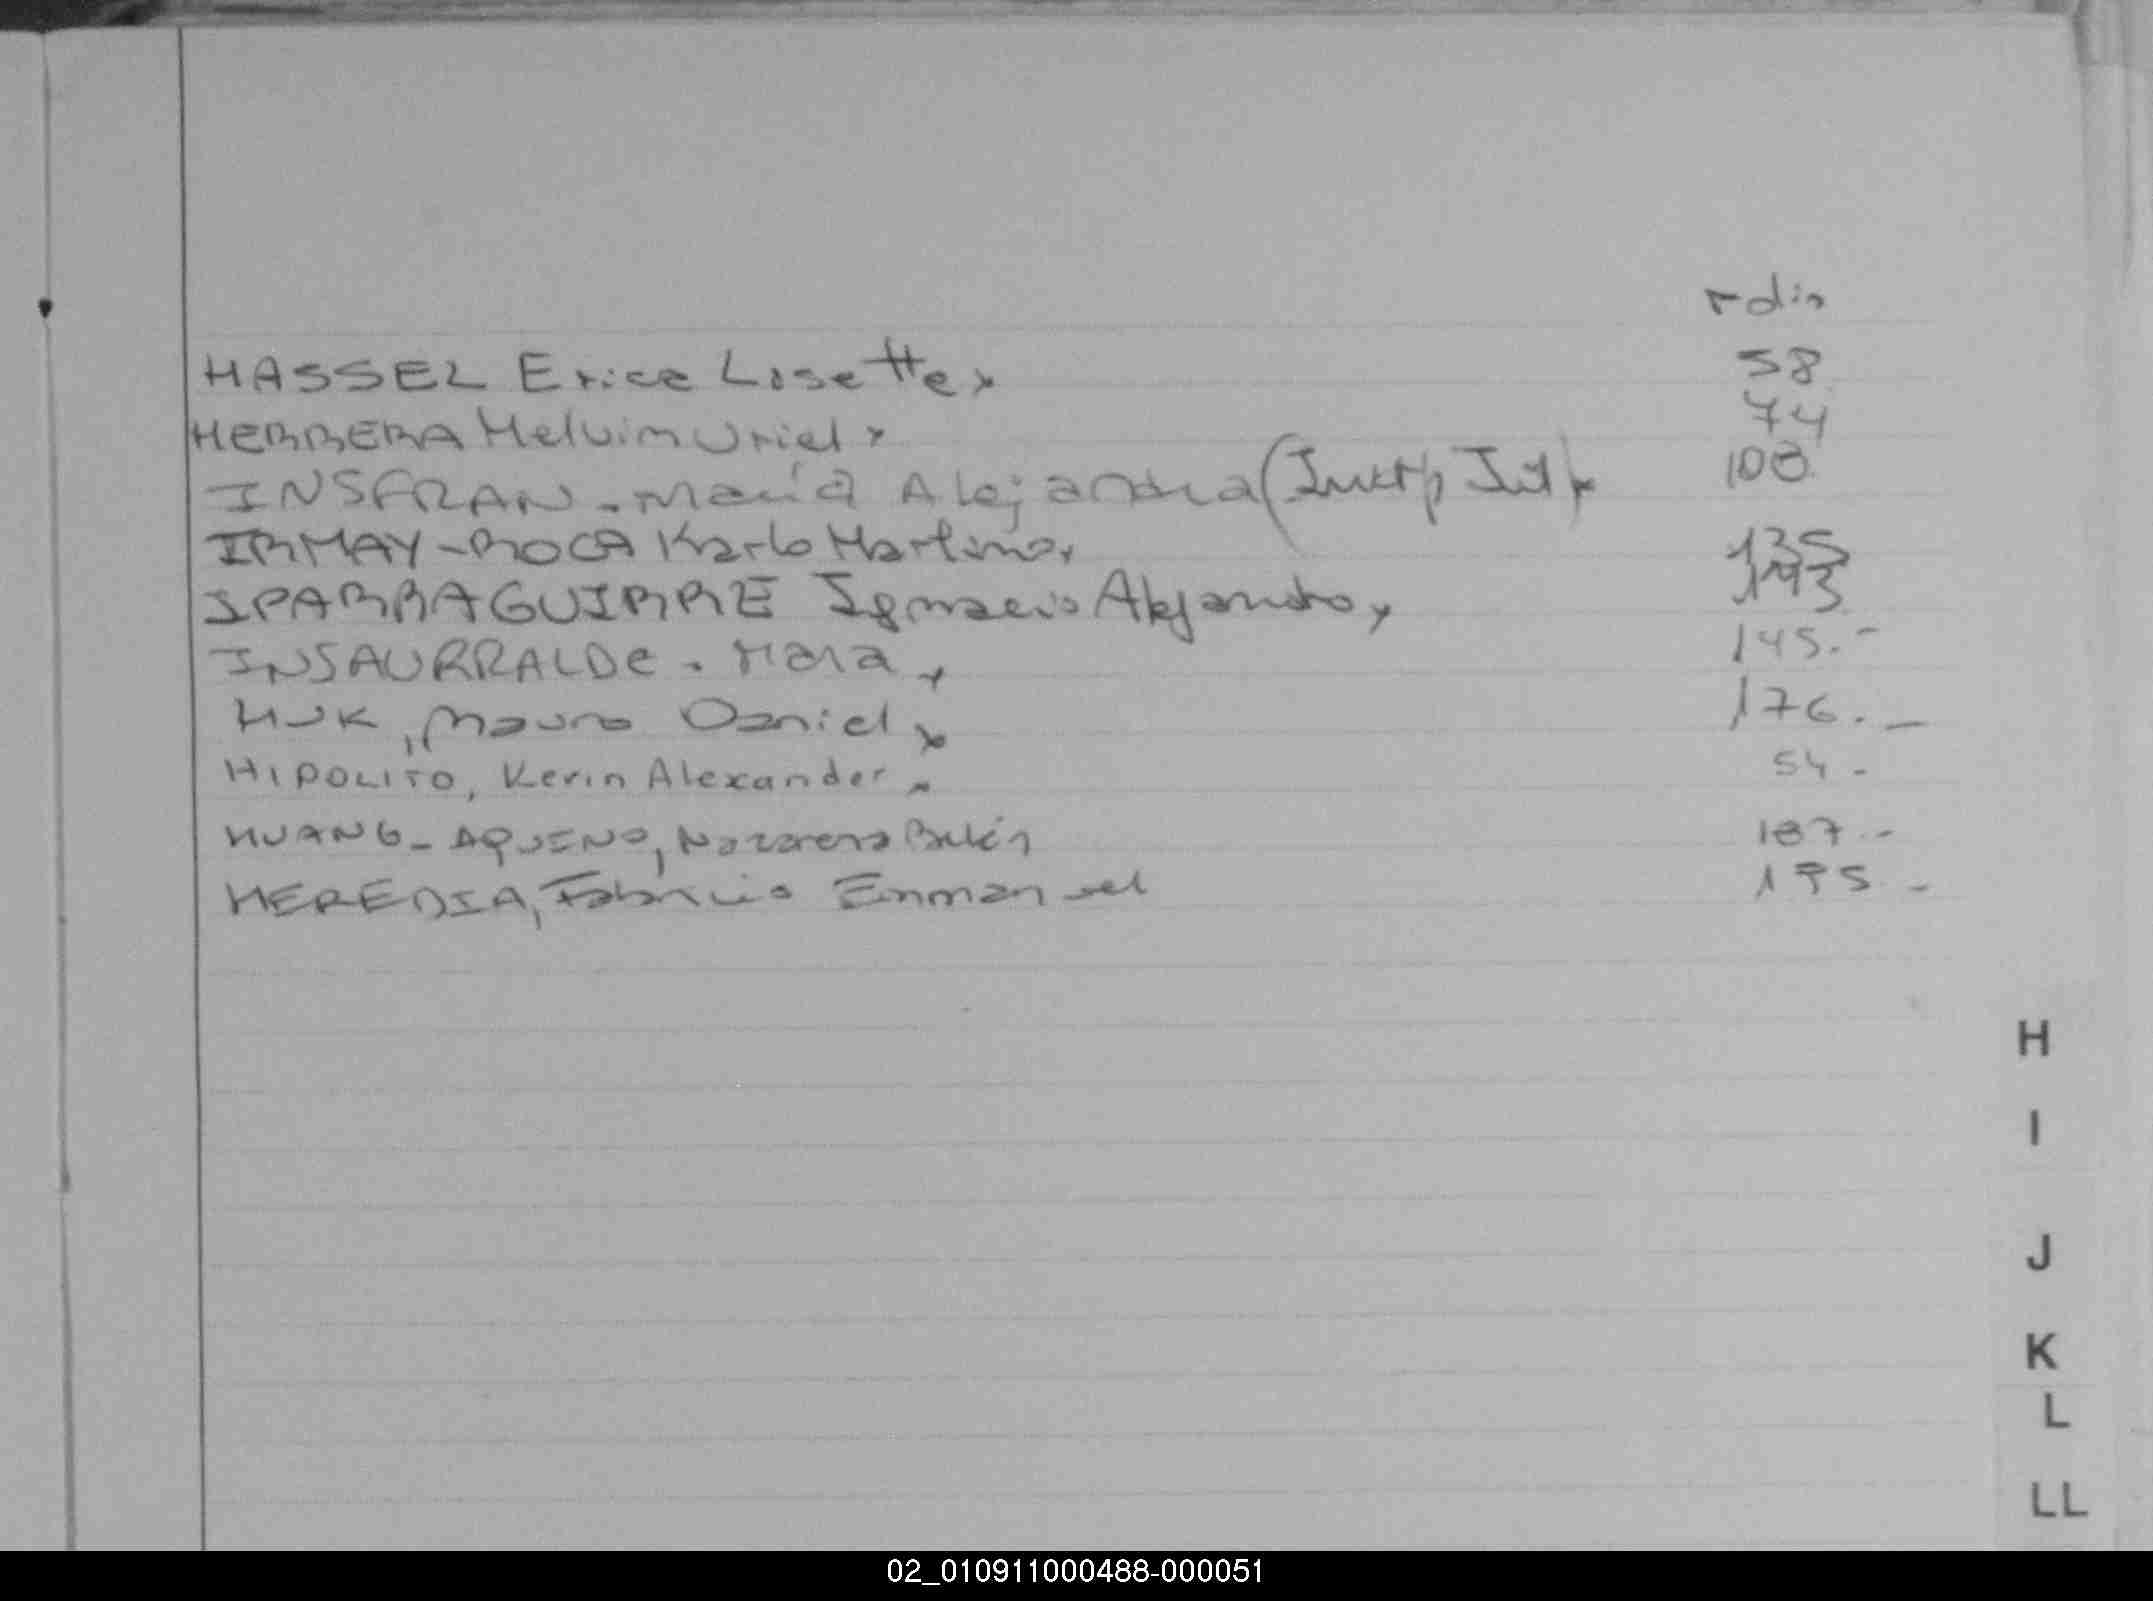 HASSEL Erica Lisette x 58
HERRERA Melvim Uriel x 74
INSFRAN - María Alejandra ( x 108
IRMAY-ROCA Karlo Martino x 135
IPARRAGUIRRE Ignacio Alejandro x 143
INSAURRALDE - Mara x 145.-
HUK, Mauro Daniel x 176.-
HIPOLITO, Kevin Alexander 54-
HUANG-AQUINO, Nazareno Belén 187.-
HEREDIA, Fabricio Emmanuel 195-
H
I
J
K
L
LL
02_010911000488-000051